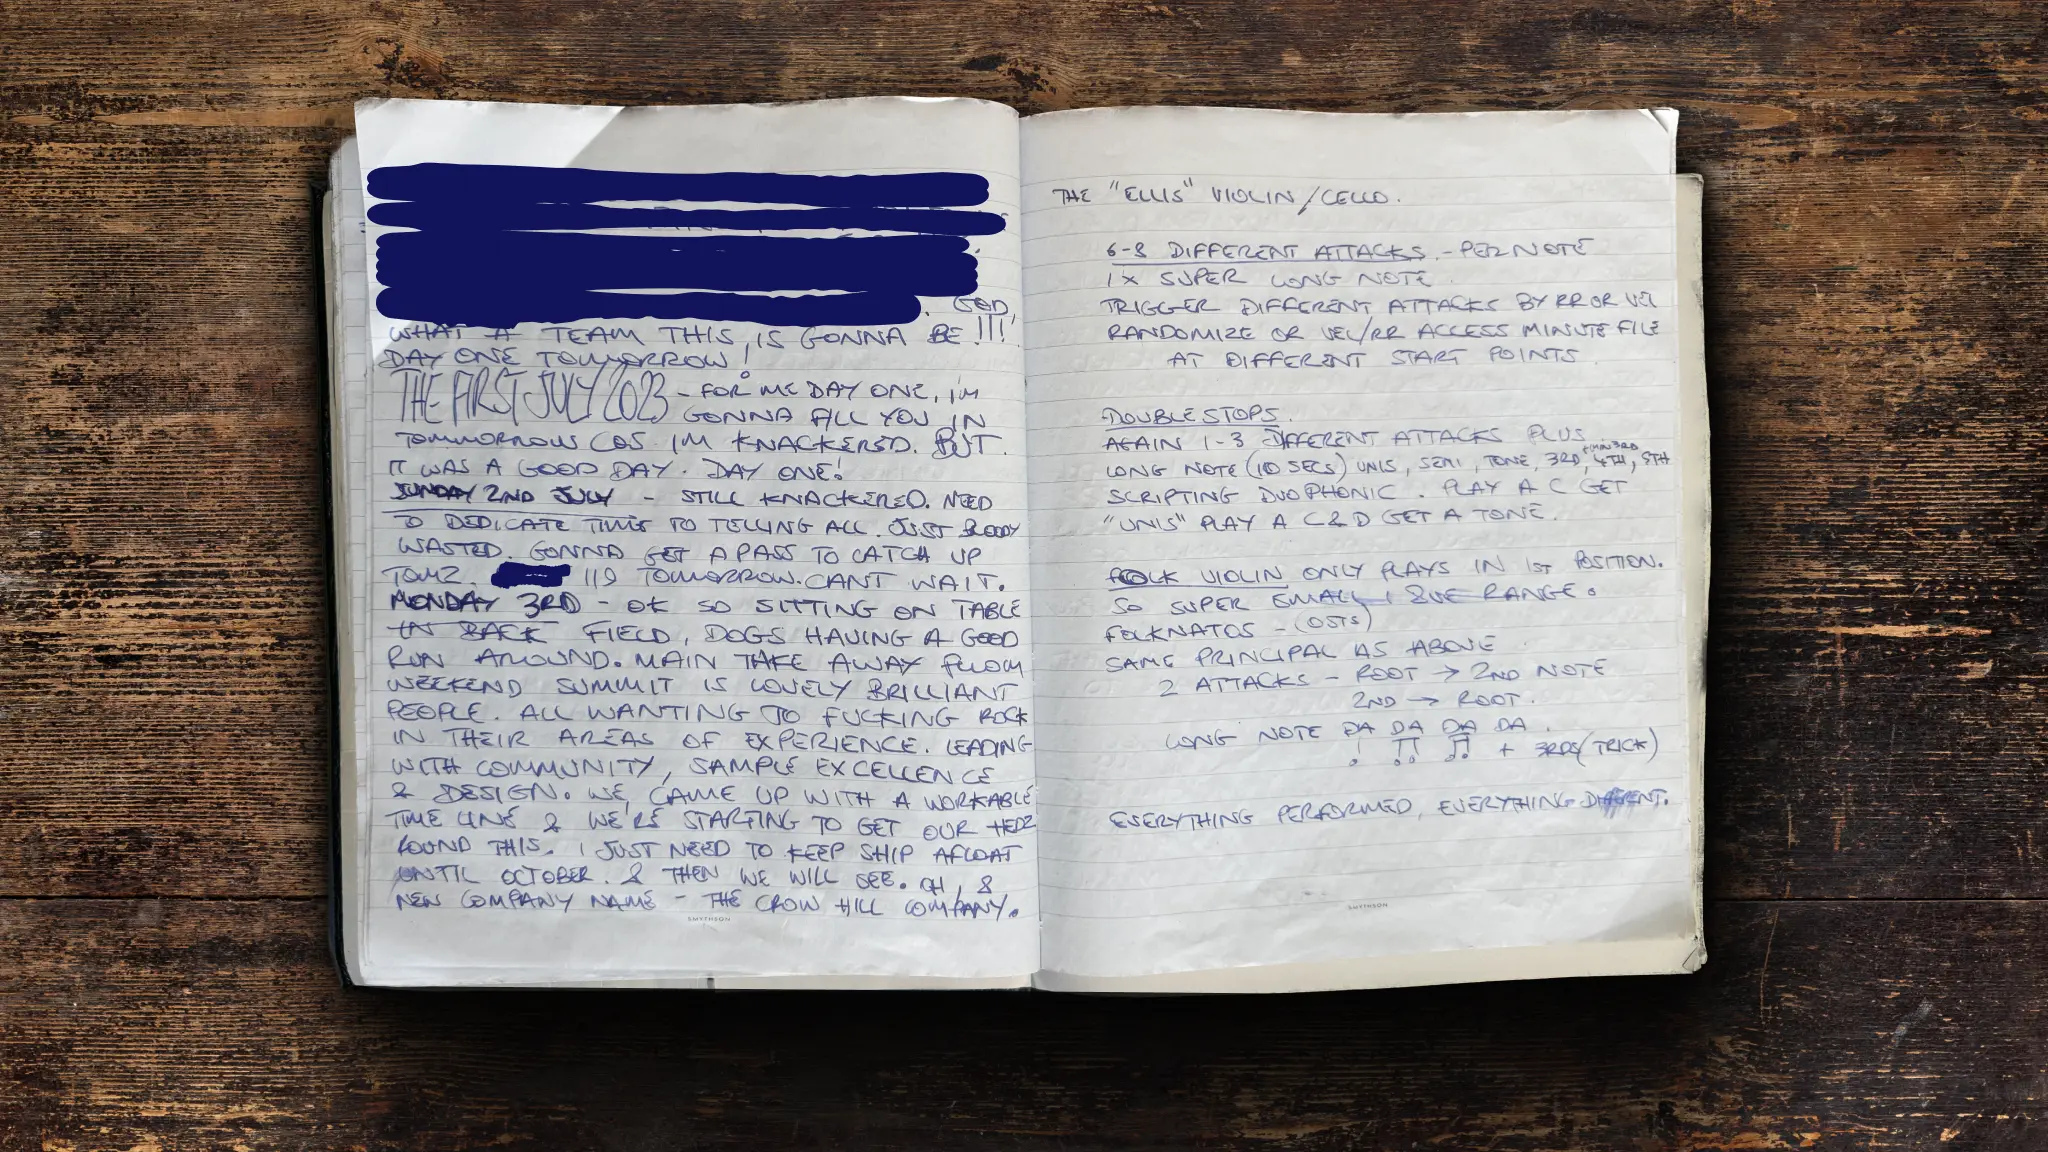 GOD,
WHAT A TEAM THIS IS GONNA BE !!!
DAY ONE TOMMORROW!
THE FIRST JULY 2023 - FOR ME DAY ONE, I'M
GONNA FILL YOU IN
TOMMORROW COS I'M KNACKERED. BUT
IT WAS A GOOD DAY. DAY ONE!
SUNDAY 2ND JULY - STILL KNACKERED. NEED
TO DEDICATE TIME TO TELLING ALL. JUST BLOODY
WASTED. GONNA GET A PASS TO CATCH UP
TOMZ. 119 TOMORROW. CANT WAIT.
MONDAY 3RD - OK SO SITTING ON TABLE
IN BACK FIELD, DOGS HAVING A GOOD
RUN AROUND. MAIN TAKE AWAY FROM
WEEKEND SUMMIT IS LOVELY BRILLIANT
PEOPLE. ALL WANTING TO FUCKING ROCK
IN THEIR AREAS OF EXPERIENCE. LEADING
WITH COMMUNITY, SAMPLE EXCELLENCE
& DESIGN. WE CAME UP WITH A WORKABLE
TIME LINE & WE'RE STARTING TO GET OUR HEDZ
ROUND THIS. I JUST NEED TO KEEP SHIP AFLOAT
UNTIL OCTOBER. & THEN WE WILL SEE. OH, &
NEW COMPANY NAME - THE CROW HILL COMPANY.
SMYTHSON
THE "ELLIS" VIOLIN/CELLO.
6-8 DIFFERENT ATTACKS - PER NOTE
1 X SUPER LONG NOTE
TRIGGER DIFFERENT ATTACKS BY RR OR VEL
RANDOMIZE OR VEL/RR ACCESS MINUTE FILE
AT DIFFERENT START POINTS
DOUBLE STOPS.
AGAIN 1-3 DIFFERENT ATTACKS PLUS
LONG NOTE (10 SECS) UNIS, SEMI, TONE, 3RD, + MIN 3RD 4TH, 5TH
SCRIPTING DUOPHONIC. PLAY A C GET
"UNIS" PLAY A C & D GET A TONE.
FOLK VIOLIN ONLY PLAYS IN 1ST POSITION.
SO SUPER SMALL, 8VE RANGE.
FOLKNATOS - (OSTS)
SAME PRINCIPAL AS ABOVE
2 ATTACKS - ROOT → 2ND NOTE
2ND → ROOT.
LONG NOTE DA DA DA DA.
+ 3RDS (TRICK)
EVERYTHING PERFORMED, EVERYTHING DIFFERENT.
SMYTHSON